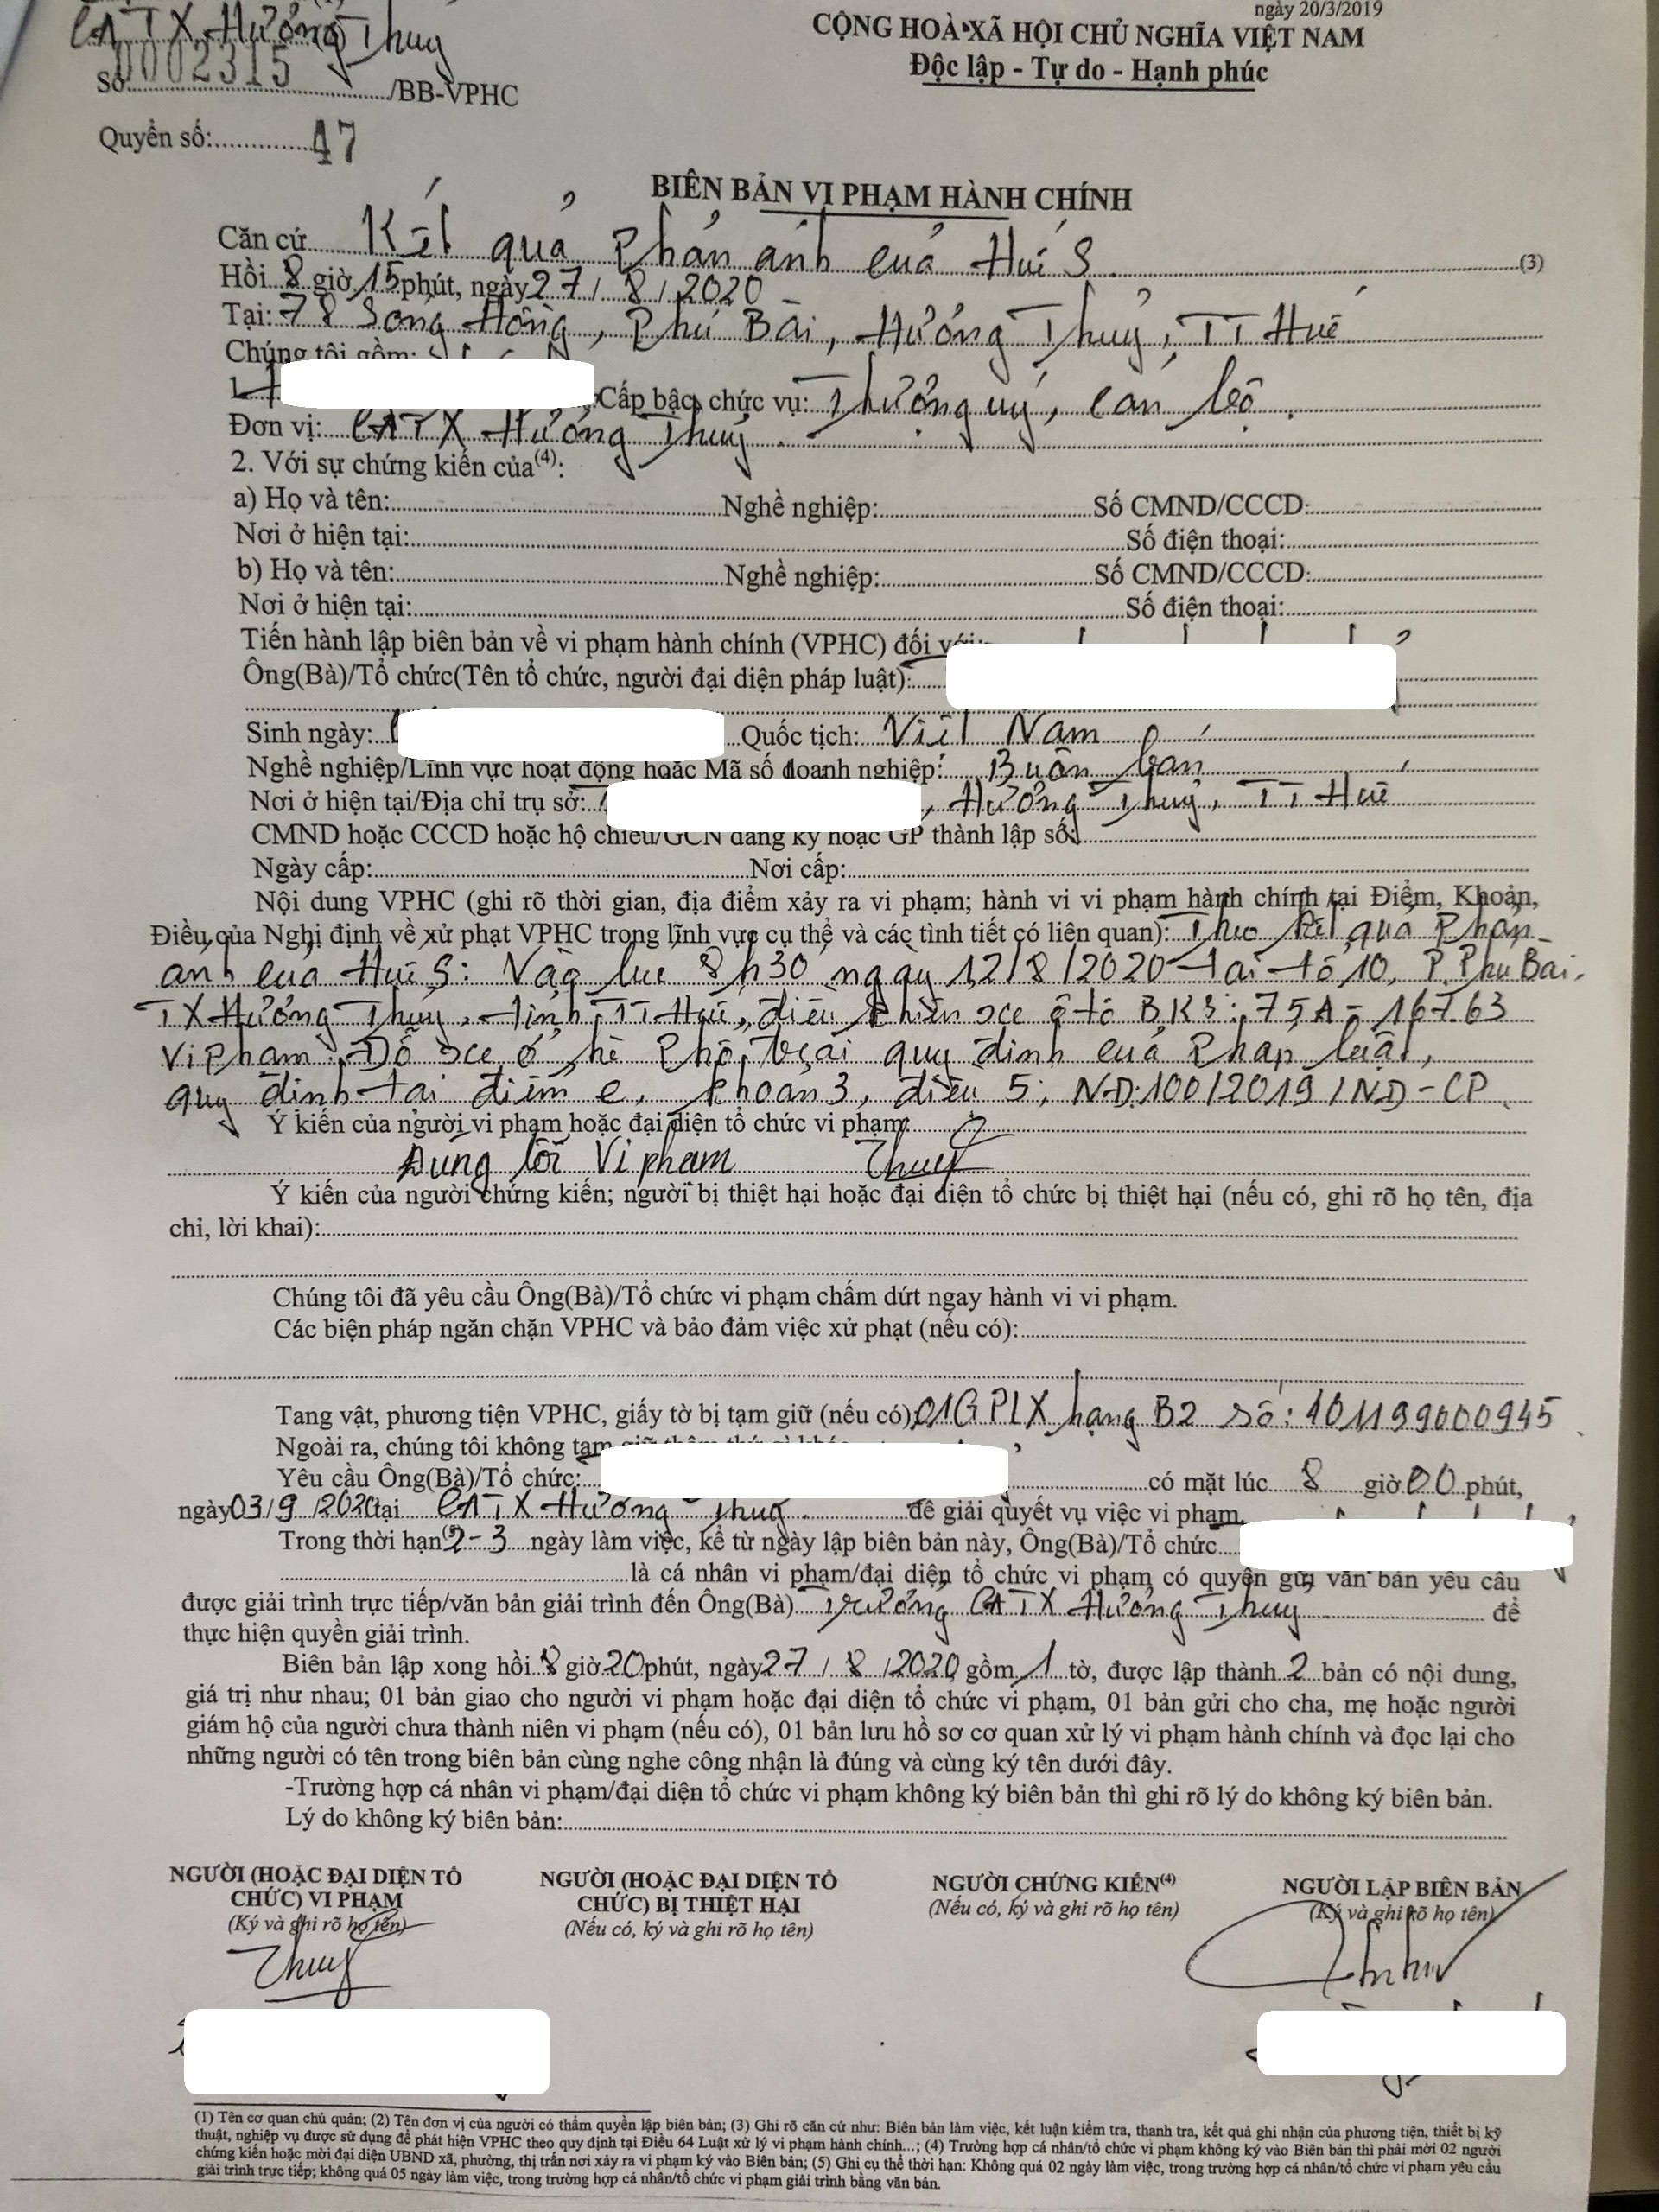 ngày 20/3/2019
CATX Hương Thuỷ
CỘNG HOÀ XÃ HỘI CHỦ NGHĨA VIỆT NAM
Độc lập - Tự do - Hạnh phúc
Số 0002315 /BB-VPHC
Quyển số: 47
BIÊN BẢN VI PHẠM HÀNH CHÍNH
Căn cứ Kết quả phản ánh của Huế S (3)
Hồi 8 giờ 15 phút, ngày 27 / 8 / 2020
Tại: 78 Sóng Hồng, Phú Bài, Hương Thuỷ, TT Huế
Chúng tôi gồm:
1. Cấp bậc, chức vụ: Thượng uý, cán bộ.
Đơn vị: CATX Hương Thuỷ.
2. Với sự chứng kiến của(4):
a) Họ và tên: Nghề nghiệp: Số CMND/CCCD:
Nơi ở hiện tại: Số điện thoại:
b) Họ và tên: Nghề nghiệp: Số CMND/CCCD:
Nơi ở hiện tại: Số điện thoại:
Tiến hành lập biên bản về vi phạm hành chính (VPHC) đối với:
Ông(Bà)/Tổ chức(Tên tổ chức, người đại diện pháp luật):
Sinh ngày: Quốc tịch: Việt Nam
Nghề nghiệp/Lĩnh vực hoạt động hoặc Mã số doanh nghiệp: Buôn bán
Nơi ở hiện tại/Địa chỉ trụ sở: , Hương Thuỷ, TT Huế
CMND hoặc CCCD hoặc hộ chiếu/GCN đăng ký hoặc GP thành lập số:
Ngày cấp: Nơi cấp:
Nội dung VPHC (ghi rõ thời gian, địa điểm xảy ra vi phạm; hành vi vi phạm hành chính tại Điểm, Khoản,
Điều của Nghị định về xử phạt VPHC trong lĩnh vực cụ thể và các tình tiết có liên quan): Theo kết quả phản
ánh của Huế S: Vào lúc 8h30 ngày 12/8/2020 tại tổ 10, P. Phú Bài,
TX Hương Thuỷ, tỉnh TT Huế, điều khiển xe ô tô BKS: 75A - 167.63
vi phạm: Đỗ xe ở hè phố trái quy định của pháp luật,
quy định tại điểm e, khoản 3, điều 5, NĐ:100/2019/NĐ-CP
Ý kiến của người vi phạm hoặc đại diện tổ chức vi phạm:
Đúng lỗi vi phạm Thuỷ
Ý kiến của người chứng kiến; người bị thiệt hại hoặc đại diện tổ chức bị thiệt hại (nếu có, ghi rõ họ tên, địa
chỉ, lời khai):
Chúng tôi đã yêu cầu Ông(Bà)/Tổ chức vi phạm chấm dứt ngay hành vi vi phạm.
Các biện pháp ngăn chặn VPHC và bảo đảm việc xử phạt (nếu có):
Tang vật, phương tiện VPHC, giấy tờ bị tạm giữ (nếu có): 01 GPLX hạng B2 số: 401199000945
Ngoài ra, chúng tôi không tạm giữ thêm thứ gì khác
Yêu cầu Ông(Bà)/Tổ chức: có mặt lúc 8 giờ 00 phút,
ngày 03/9/2020 tại CATX Hương Thuỷ. để giải quyết vụ việc vi phạm.
Trong thời hạn(5) 2-3 ngày làm việc, kể từ ngày lập biên bản này, Ông(Bà)/Tổ chức
là cá nhân vi phạm/đại diện tổ chức vi phạm có quyền gửi văn bản yêu cầu
được giải trình trực tiếp/văn bản giải trình đến Ông(Bà) Trưởng CATX Hương Thuỷ để
thực hiện quyền giải trình.
Biên bản lập xong hồi 8 giờ 20 phút, ngày 27 / 8 / 2020 gồm 1 tờ, được lập thành 2 bản có nội dung,
giá trị như nhau; 01 bản giao cho người vi phạm hoặc đại diện tổ chức vi phạm, 01 bản gửi cho cha, mẹ hoặc người
giám hộ của người chưa thành niên vi phạm (nếu có), 01 bản lưu hồ sơ cơ quan xử lý vi phạm hành chính và đọc lại cho
những người có tên trong biên bản cùng nghe công nhận là đúng và cùng ký tên dưới đây.
-Trường hợp cá nhân vi phạm/đại diện tổ chức vi phạm không ký biên bản thì ghi rõ lý do không ký biên bản.
Lý do không ký biên bản:
NGƯỜI (HOẶC ĐẠI DIỆN TỔ CHỨC) VI PHẠM
(Ký và ghi rõ họ tên)
Thuỷ
NGƯỜI (HOẶC ĐẠI DIỆN TỔ CHỨC) BỊ THIỆT HẠI
(Nếu có, ký và ghi rõ họ tên)
NGƯỜI CHỨNG KIẾN(4)
(Nếu có, ký và ghi rõ họ tên)
NGƯỜI LẬP BIÊN BẢN
(Ký và ghi rõ họ tên)
(1) Tên cơ quan chủ quản; (2) Tên đơn vị của người có thẩm quyền lập biên bản; (3) Ghi rõ căn cứ như: Biên bản làm việc, kết luận kiểm tra, thanh tra, kết quả ghi nhận của phương tiện, thiết bị kỹ
thuật, nghiệp vụ được sử dụng để phát hiện VPHC theo quy định tại Điều 64 Luật xử lý vi phạm hành chính...; (4) Trường hợp cá nhân/tổ chức vi phạm không ký vào Biên bản thì phải mời 02 người
chứng kiến hoặc mời đại diện UBND xã, phường, thị trấn nơi xảy ra vi phạm ký vào Biên bản; (5) Ghi cụ thể thời hạn: Không quá 02 ngày làm việc, trong trường hợp cá nhân/tổ chức vi phạm yêu cầu
giải trình trực tiếp; không quá 05 ngày làm việc, trong trường hợp cá nhân/tổ chức vi phạm giải trình bằng văn bản.